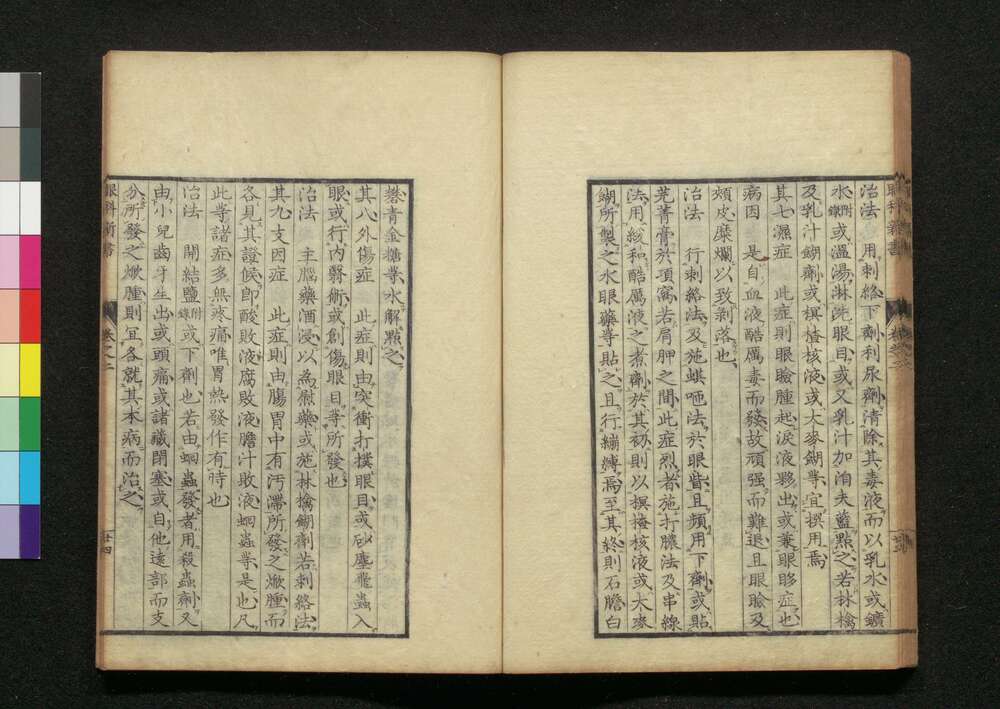 治法　用刺絡下劑利尿劑清除其毒液而以乳水或鑛
水附錄或溫湯淋洗眼目或又乳汁加洎夫藍點之若林檎
及乳汁餬劑或榠楂核液或大麥餬等宜撰用焉
其七濕症　此症則眼瞼腫起淚液夥出或兼眼眵症也
病因　是自血液酷厲毒而發故頑强而難退且眼瞼及
頰皮糜爛以致剥落也
治法　行刺絡法及施蜞咂法於眼眥且頻用下劑或貼
芫菁膏於項窩若肩胛之間此症烈者施打膿法及串線
法用緩和酷厲液之煮劑於其初則以榠楂核液或大麥
餬所製之水眼藥等貼之且行繃縛焉至其終則石膽白
礬青金糖等水解點之
其八外傷症　此症則由突衝打撲眼目或砂塵飛蟲入
眼或行內翳術或創傷眼目等所發也
治法　主腦藥酒浸以為慰藥或施林檎餬劑若刺絡法
其九支因症　此症則由腸胃中有汚滯所發之焮腫而
各見其證候卽酸敗液腐敗液膽汁敗液蛔蟲等是也凡
此等諸症多無疼痛唯胃熱發作有時也
治法　開結鹽附錄或下劑也若由蛔蟲發者用殺蟲劑又
由小兒齒牙生出或頭痛或諸藏閉塞或自他遠部而支
分所發之焮腫則宜各就其本病而治之
眼科新書
卷之二
廿四